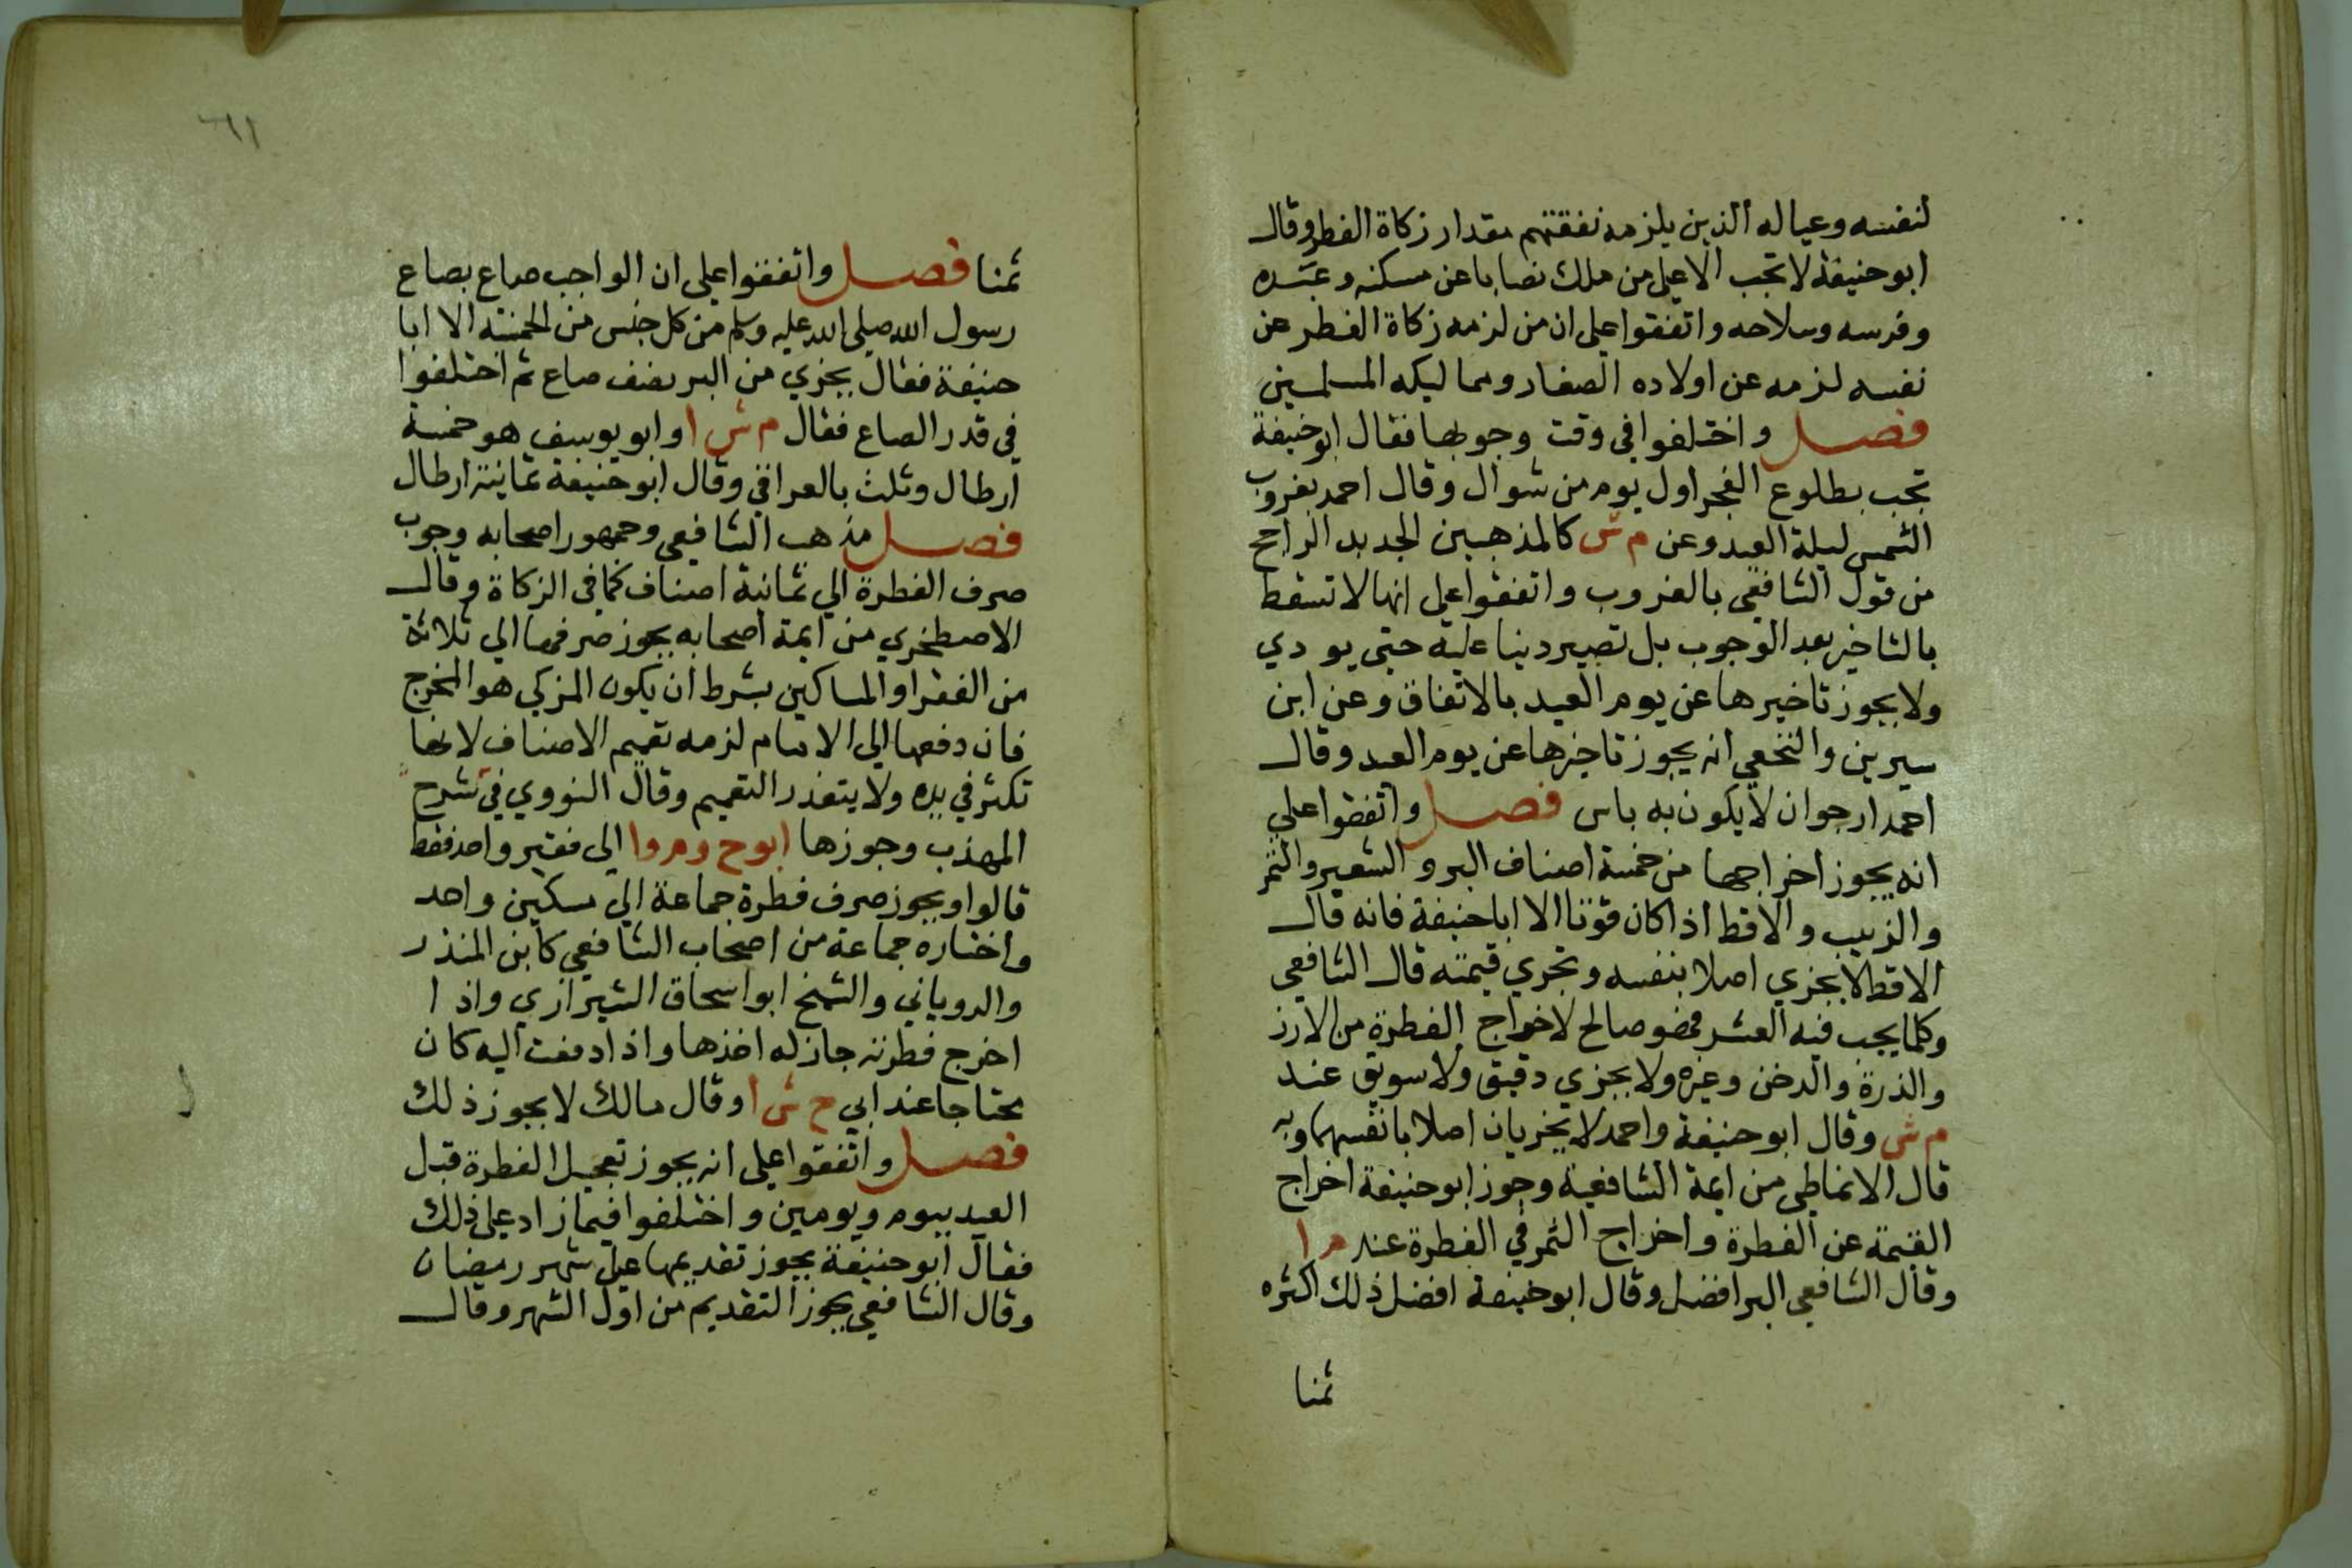 لنفسه وعياله الذين يلزمه نفقتهم مقدار زكاة الفطر وقال
ابو حنيفة لا تجب الا على من ملك نصابا عن مسكنه وعبده
وفرسه وسلاحه واتفقوا على ان من لزمه زكاة الفطر عن
نفسه لزمه عن اولاده الصغار ومماليكه المسلمين
فصل واختلفوا في وقت وجوبها فقال ابو حنيفة
تجب بطلوع الفجر اول يوم من شوال وقال احمد بغروب
الشمس ليلة العيد وعن م ش كالمذهبين الجديد الراجح
من قول الشافعي بالغروب واتفقوا على انها لا تسقط
بالتاخير بعد الوجوب بل تصير دينا عليه حتى يودي
ولا يجوز تاخيرها عن يوم العيد بالاتفاق وعن ابن
سيرين والنخعي انه يجوز تاخيرها عن يوم العيد وقال
احمد ارجوان لا يكون به باس فصل واتفقوا علي
انه يجوز اخراجها من خمسة اصناف البر والشعير والتمر
والزبيب والاقط اذا كان قوتا الا ابا حنيفة فانه قال
الاقط لا يجزي اصلا بنفسه وتجزي قيمته قال الشافعي
وكلما يجب فيه العشر فهو صالح لاخراج الفطرة من الارز
والذرة والدخن وغيره ولا يجزي دقيق ولا سويق عند
م ش وقال ابو حنيفة واحمد لا يجزيان اصلا بانفسهما وبه
قال الانماطي من ايمة الشافعية وجوز ابو حنيفة اخراج
القيمة عن الفطرة واخراج التمر في الفطرة عند م ا
وقال الشافعي البر افضل وقال ابو حنيفة افضل ذلك اكثره
ثمنا
ثمنا فصل واتفقوا على ان الواجب صاع بصاع
رسول الله صلى الله عليه وسلم من كل جنس من الخمسة الا ابا
حنيفة فقال يجزي من البر نصف صاع ثم اختلفوا
في قدر الصاع فقال م ش ا وابو يوسف هو خمسة
ارطال وثلث بالعراقي وقال ابو حنيفة ثمانية ارطال
فصل مذهب الشافعي وجمهور اصحابه وجوب
صرف الفطرة الي ثمانية اصناف كما في الزكاة وقال
الاصطخري من ايمة اصحابه يجوز صرفها الي ثلاثة
من الفقرا والمساكين بشرط ان يكون المزكي هو المخرج
فان دفعها الي الامام لزمه تعميم الاصناف لانها
تكثر في يده ولا يتعذر التعميم وقال النووي في شرح
المهذب وجوزها ابو ح وم وا الي فقير واحد فقط
قالوا ويجوز صرف فطرة جماعة الي مسكين واحد
واختاره جماعة من اصحاب الشافعي كابن المنذر
والروياني والشيخ ابو اسحاق الشيرازي واذا
اخرج فطرته جاز له اخذها واذا دفعت اليه كان
محتاجا عند ابي ح ش ا وقال مالك لا يجوز ذلك
فصل واتفقوا على انه يجوز تعجيل الفطرة قبل
العيد بيوم ويومين واختلفوا فيما زاد على ذلك
فقال ابو حنيفة يجوز تقديمها على شهر رمضان
وقال الشافعي يجوز التقديم من اول الشهر وقال